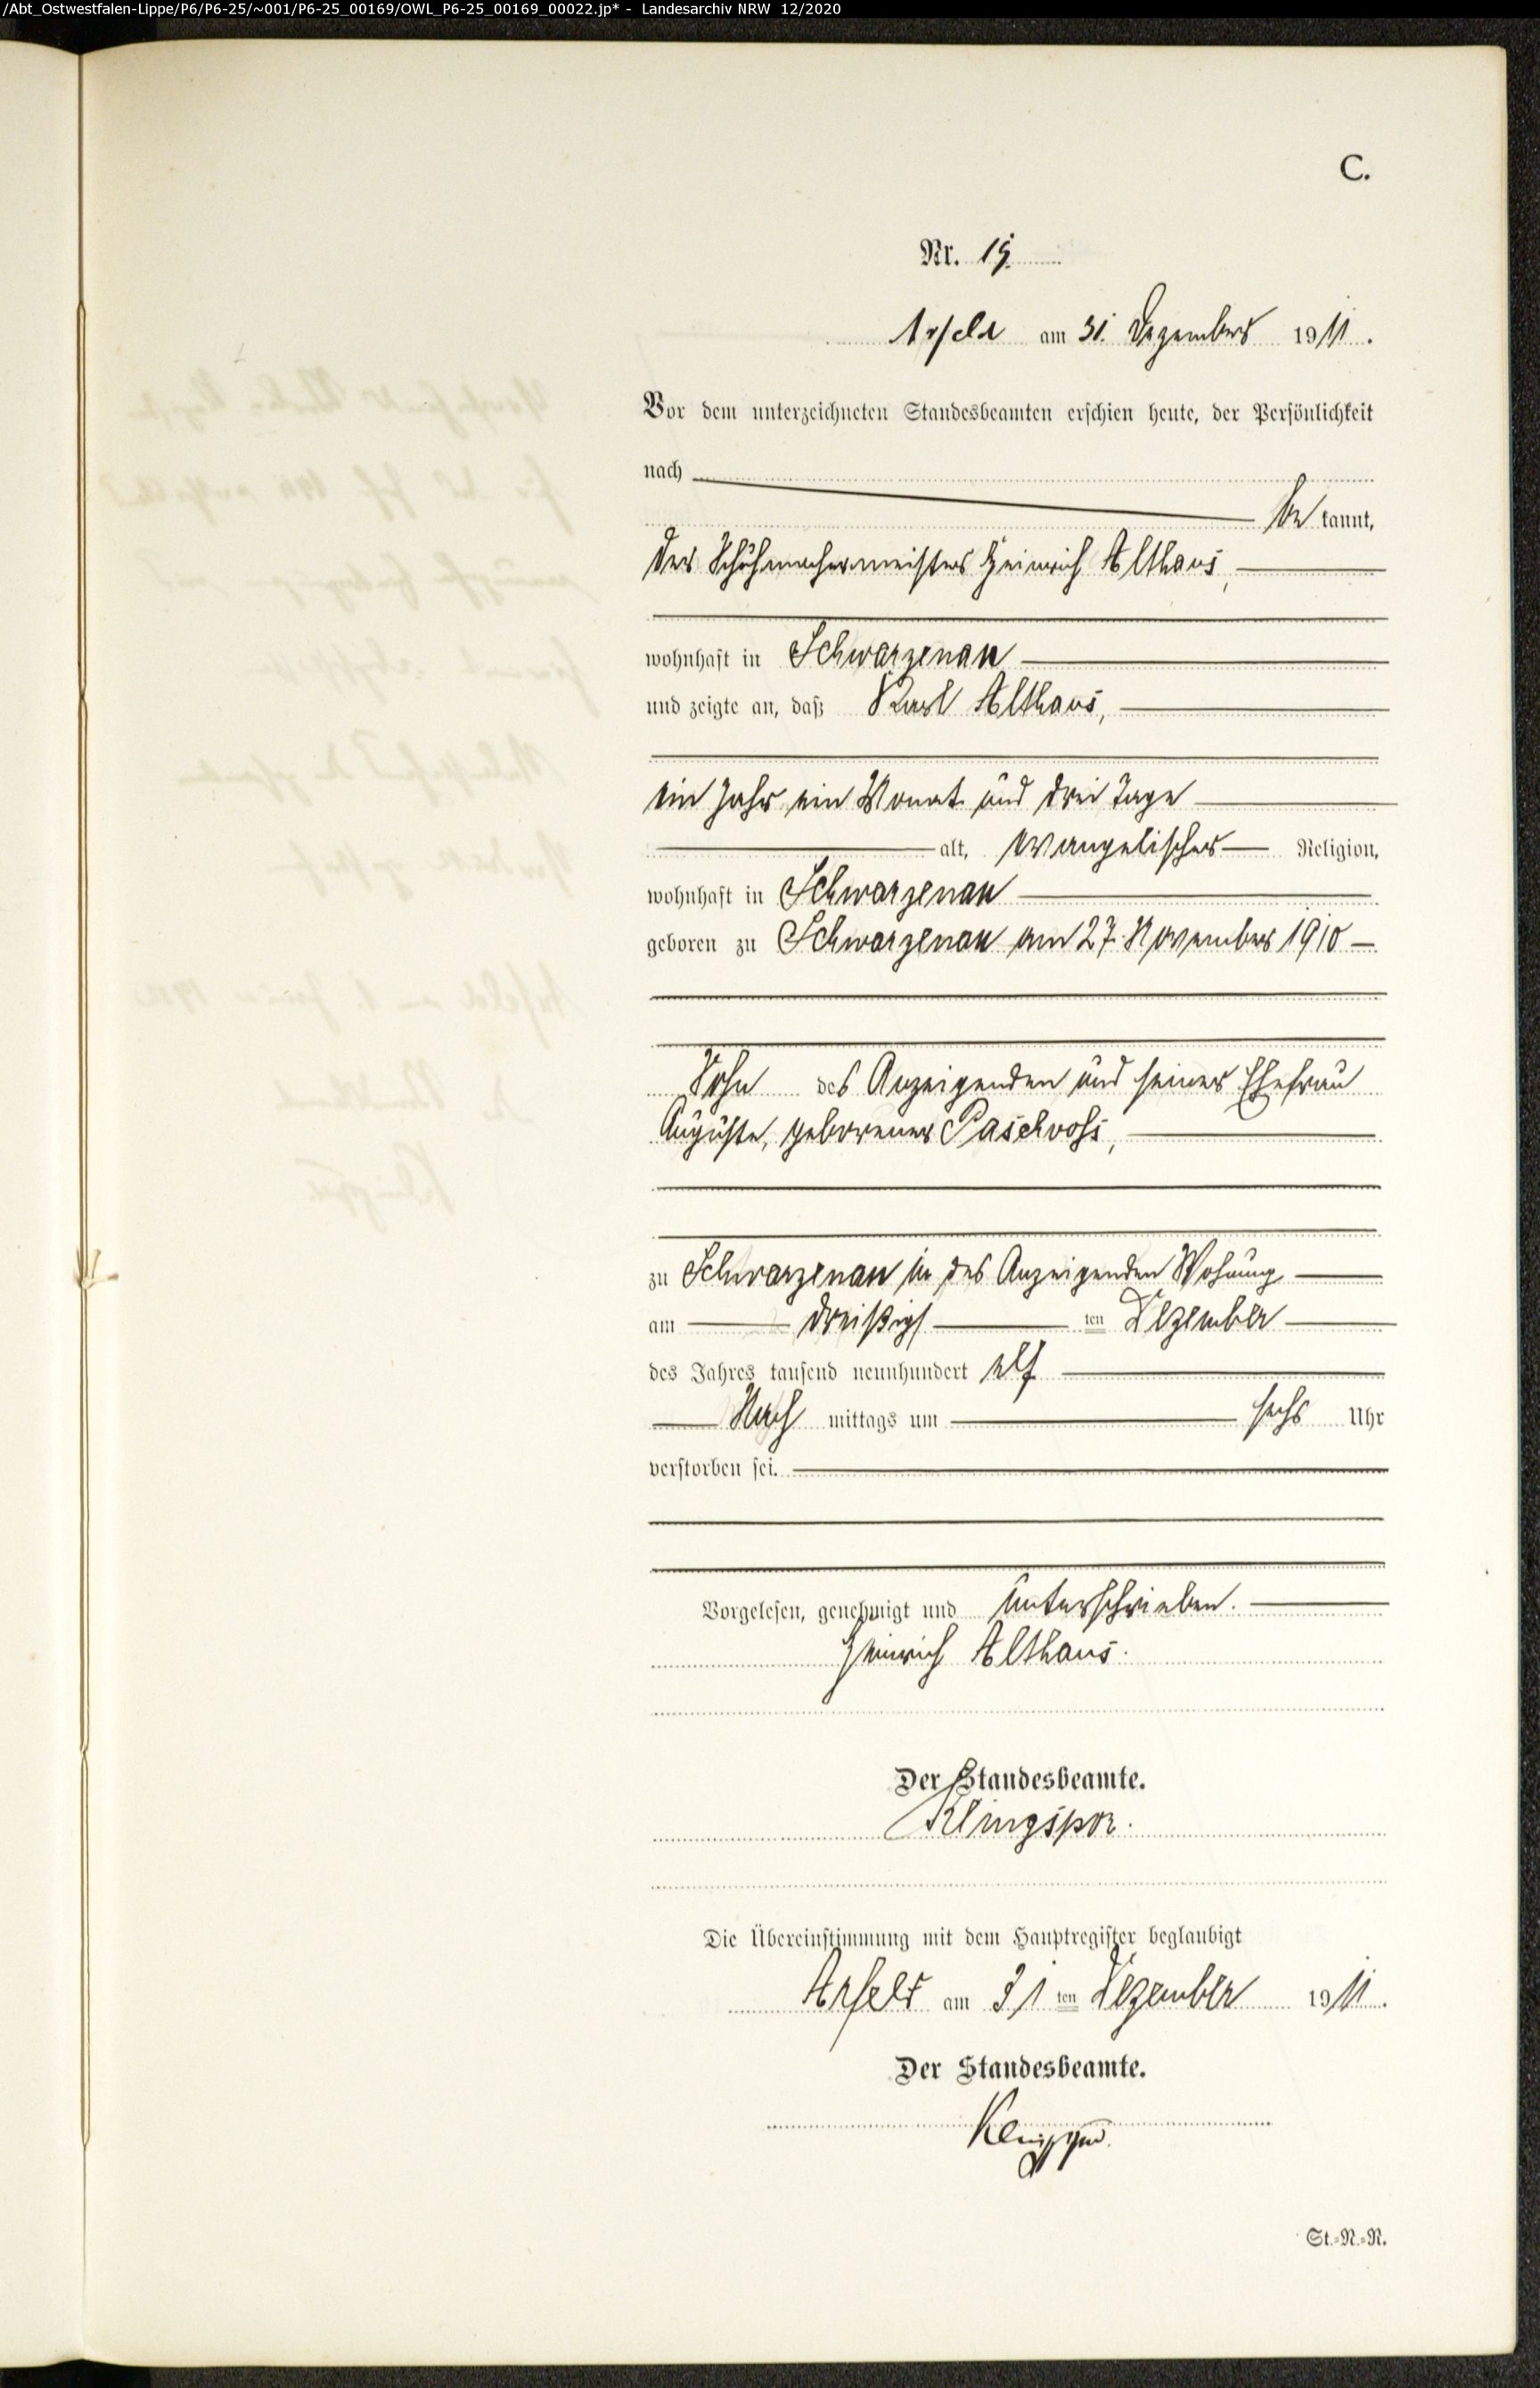 /Abt_Ostwestfalen-Lippe/P6/P6-25/~001/P6-25_00169/OWL_P6-25_00169_00022.jp* - Landesarchiv NRW 12/2020
C.
Nr. 19.
Arfeld am 31. Dezember 1911.
Vor dem unterzeichneten Standesbeamten erschien heute, der Persönlichkeit
nach
be kannt,
der Schuhmachermeister Heinrich Althaus,
wohnhaft in Schwarzenau
und zeigte an, daß Karl Althaus,
ein Jahr ein Monat und drei Tage
alt, evangelischer Religion,
wohnhaft in Schwarzenau
geboren zu Schwarzenau am 27. November 1910
Sohn des Anzeigenden und seiner Ehefrau
Auguste, geborener
zu Schwarzenau in des Anzeigenden Wohnung
am dreißigs ten Dezember
des Jahres tausend neunhundert elf
Nach mittags um sechs Uhr
verstorben sei.
Vorgelesen, genehmigt und unterschrieben.
Heinrich Althaus.
Der Standesbeamte.
Klingspor.
Die Übereinstimmung mit dem Hauptregister beglaubigt
Arfeld am 31 ten Dezember 1911.
Der Standesbeamte.
Klingspor.
St.-N.-R.